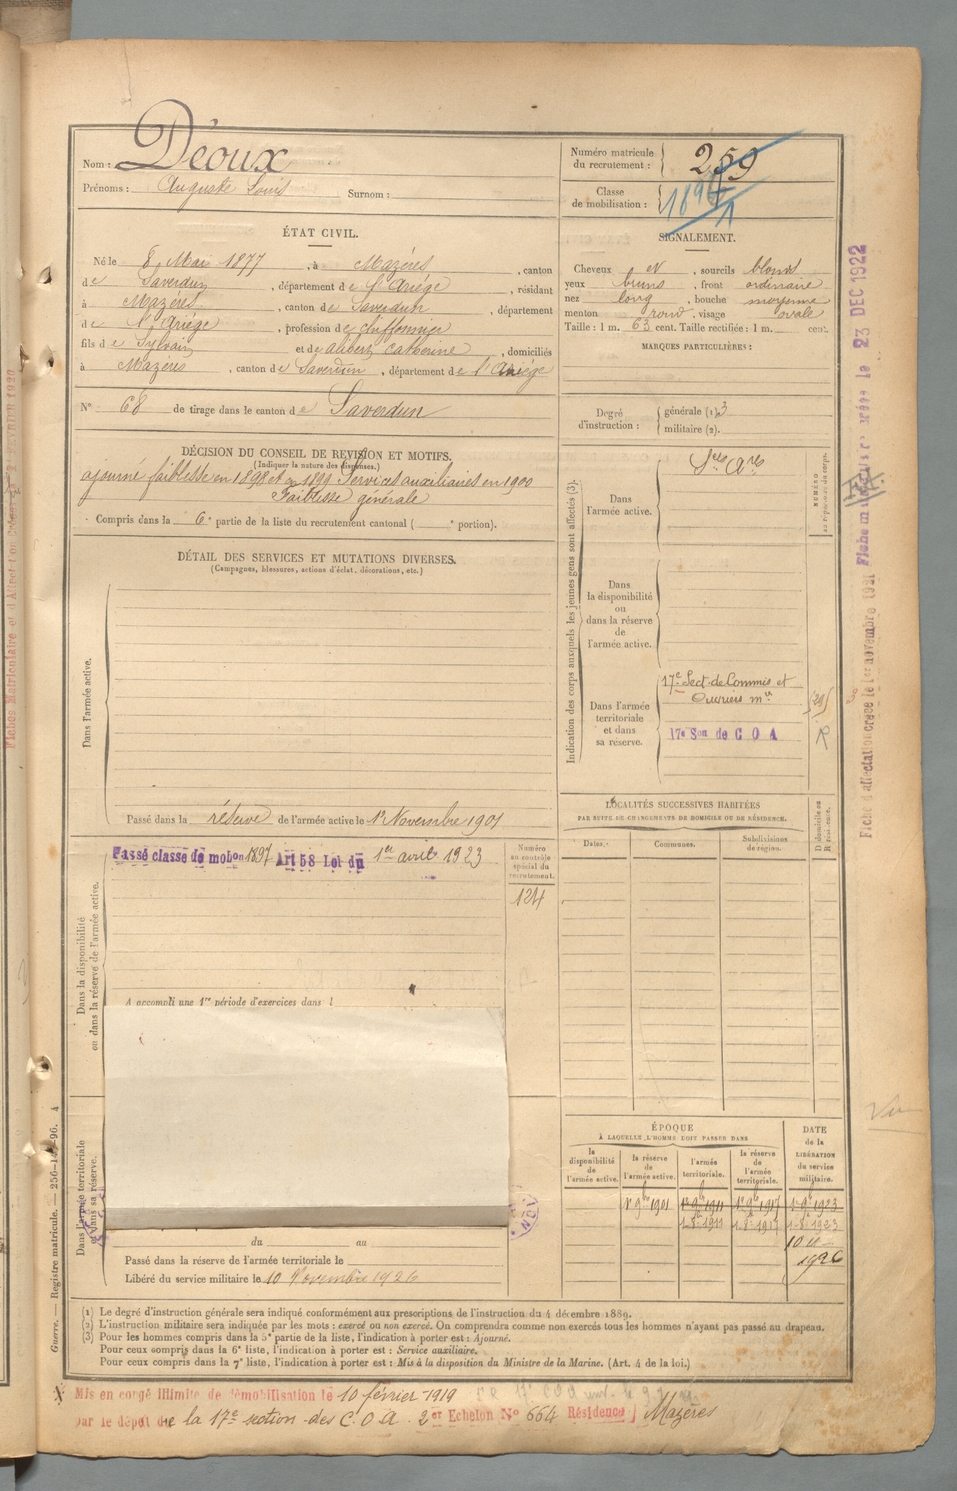 Nom : Déoux
Prénoms : Auguste Louis Surnom :
Numéro matricule du recrutement : 259
Classe de mobilisation : 1897
ÉTAT CIVIL.
Né le 8 Mai 1877, à Mazères, canton
de Saverdun, département de l'Ariège, résidant
à Mazères, canton de Saverdun, département
de l'Ariège, profession de chiffonnier
fils de Sylvain et de alibert Catherine, domiciliés
à Mazères, canton de Saverdun, département de l'Ariège
N° 68 de tirage dans le canton de Saverdun
SIGNALEMENT.
Cheveux et, sourcils blonds
yeux bruns, front ordinaire
nez long, bouche moyenne
menton rond, visage ovale
Taille : 1 m. 63 cent. Taille rectifiée : 1 m. cent.
MARQUES PARTICULIÈRES :
Degré d'instruction : générale (1). 3
militaire (2).
DÉCISION DU CONSEIL DE REVISION ET MOTIFS.
(Indiquer la nature des dispenses.)
ajourné faiblesse en 1898 et en 1899 Services auxiliaires en 1900
Faiblesse générale
Compris dans la 6e partie de la liste du recrutement cantonal ( e portion).
DÉTAIL DES SERVICES ET MUTATIONS DIVERSES.
(Campagnes, blessures, actions d'éclat, décorations, etc.)
Dans l'armée active.
Passé dans la réserve de l'armée active le 1er Novembre 1901
Indication des corps auxquels les jeunes gens sont affectés (3).
Dans l'armée active.
Sces Ares
NUMÉRO au répertoire du corps.
Dans la disponibilité ou dans la réserve de l'armée active.
Dans l'armée territoriale et dans sa réserve.
17e Sect. de Commis et
Ouvriers mres
17e Son de C O A
R
Dans la disponibilité ou dans la réserve de l'armée active.
Passé classe de mobon 1897 Art 58 Loi du 1er avril 1923
Numéro au contrôle spécial du recrutement.
124
A accompli une 1re période d'exercices dans l
LOCALITÉS SUCCESSIVES HABITÉES
PAR SUITE DE CHANGEMENTS DE DOMICILE OU DE RÉSIDENCE.
Dates. Communes. Subdivisions de région. D domicile ou R résidence.
ÉPOQUE
À LAQUELLE L'HOMME DOIT PASSER DANS
la disponibilité de l'armée active.
la réserve de l'armée active.
l'armée territoriale.
la réserve de l'armée territoriale.
DATE de la LIBÉRATION du service militaire.
1er 9bre 1901 1er 9b 1911 1er 9b 1917 1er 9b 1923
1-8b 1911 1-8b 1917 1-8b 1923
10 11
1926
Dans l'armée territoriale et dans sa réserve.
du au
Passé dans la réserve de l'armée territoriale le
Libéré du service militaire le 10 Novembre 1926
(1) Le degré d'instruction générale sera indiqué conformément aux prescriptions de l'instruction du 4 décembre 1889.
(2) L'instruction militaire sera indiquée par les mots : exercé ou non exercé. On comprendra comme non exercés tous les hommes n'ayant pas passé au drapeau.
(3) Pour les hommes compris dans la 5e partie de la liste, l'indication à porter est : Ajourné.
Pour ceux compris dans la 6e liste, l'indication à porter est : Service auxiliaire.
Pour ceux compris dans la 7e liste, l'indication à porter est : Mis à la disposition du Ministre de la Marine. (Art. 4 de la loi.)
X Mis en congé illimité de démobilisation le 10 février 1919
par le dépôt de la 17e section des C. O. A. 2er Echelon N° 664 Résidence Mazères
Guerre. — Registre matricule.
Fiche d'affectation créée le 1er novembre 1921
Fiche matricule créée le 23 DEC 1922
Vu